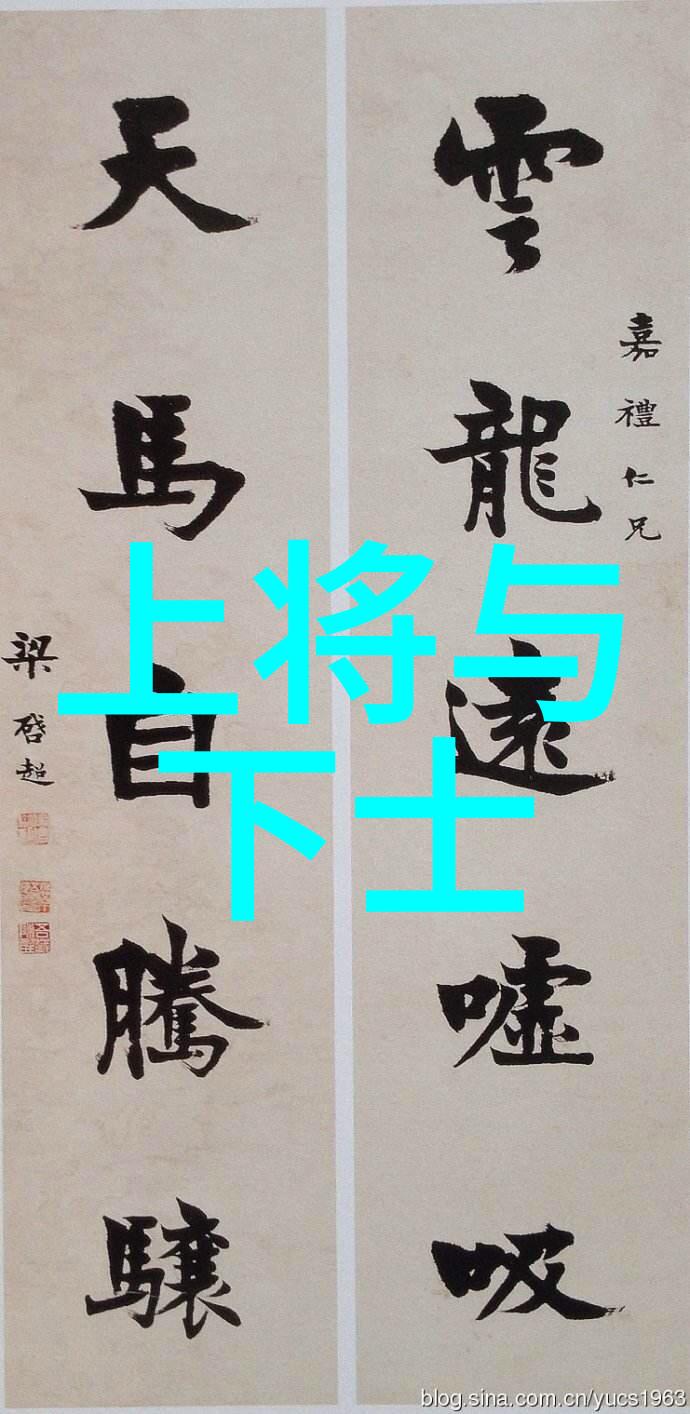 雲龍遠噓吸
嘉禮仁兄
天馬自騰驤
梁啓超
上将与
下士
blog.sina.com.cn/yucs1963